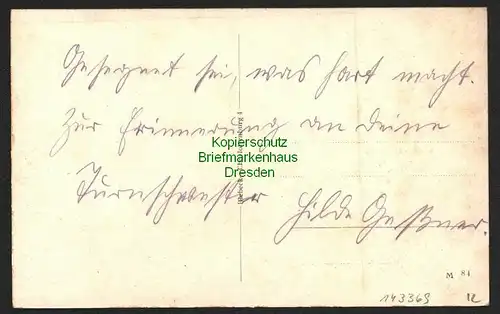 Gesegnet sei, was hart macht.
Zur Erinnerung an Deine
Turnschwester Hilde Geßner.
Kopierschutz
Briefmarkenhaus
Dresden
M 81
143369
12